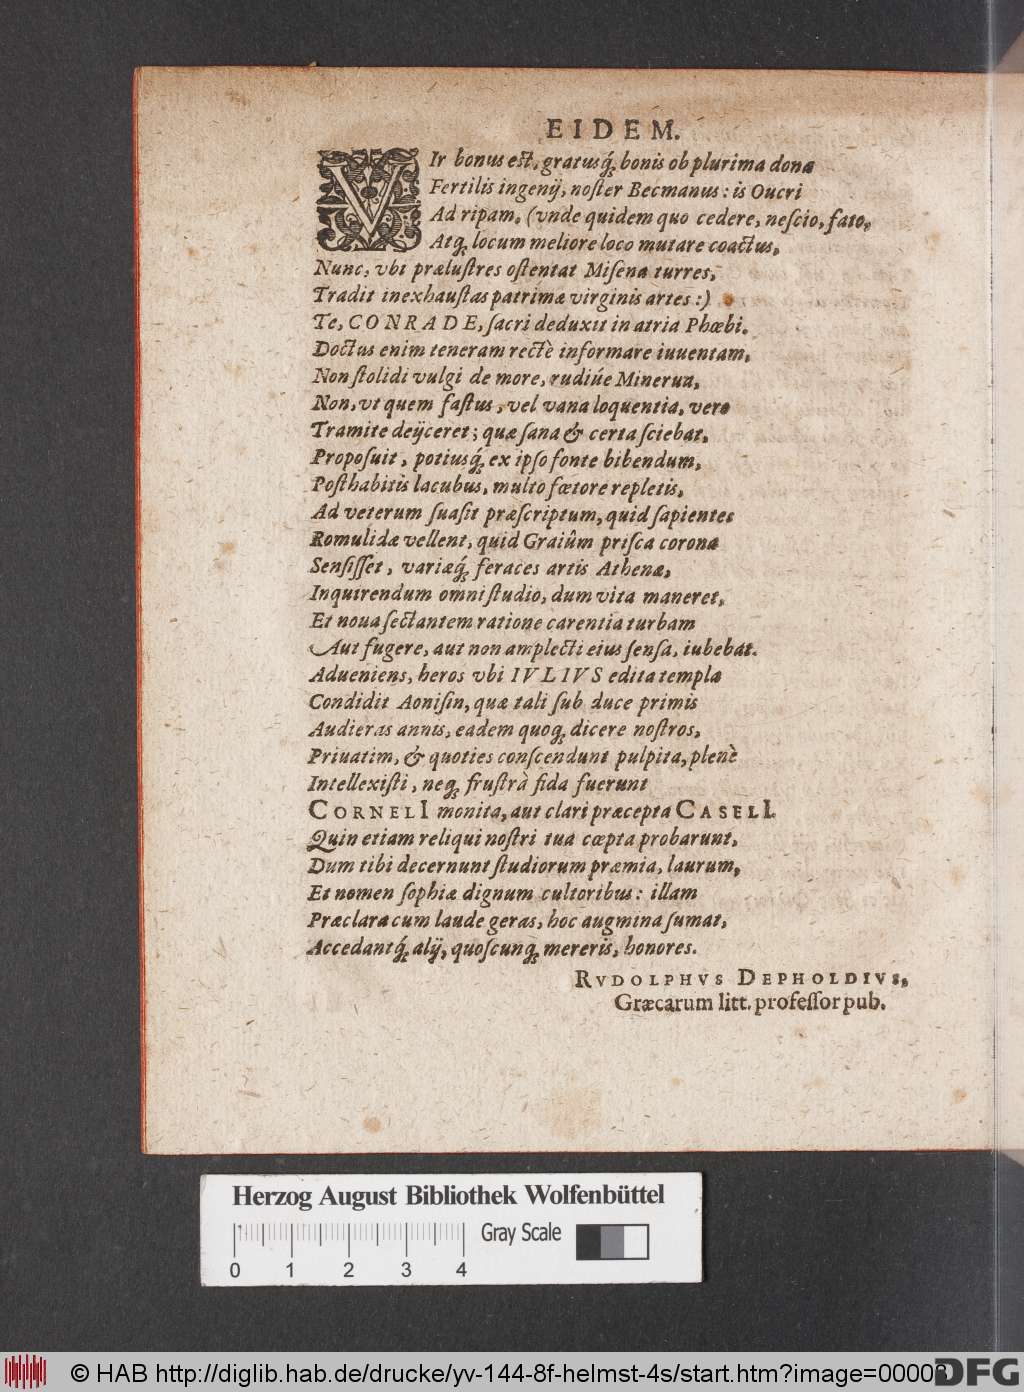 EIDEM.
VIr bonus est, gratusq́; bonis ob plurima dona
Fertilis ingenij, noſter Becmanus: is Oucri
Ad ripam, (vnde quidem quo cedere, neſcio, fato,
Atq; locum meliore loco mutare coactus,
Nunc, vbi præluſtres oſtentat Miſena turres,
Tradit inexhauſtas patrimæ virginis artes:)
Te, CONRADE, ſacri deduxit in atria Phœbi.
Doctus enim teneram rectè informare iuuentam,
Non ſtolidi vulgi de more, rudiúe Minerua,
Non, vt quem faſtus, vel vana loquentia, vero
Tramite deijceret; quæ ſana & certa ſciebat,
Propoſuit, potiusq́; ex ipſo fonte bibendum,
Poſthabitis lacubus, multo fœtore repletis,
Ad veterum ſuaſit præſcriptum, quid ſapientes
Romulidæ vellent, quid Graiûm priſca corona
Senſiſſet, variæq́; feraces artis Athenæ,
Inquirendum omni ſtudio, dum vita maneret,
Et noua ſectantem ratione carentia turbam
Aut fugere, aut non amplecti eius ſenſa, iubebat.
Adueniens, heros vbi IVLIVS edita templa
Condidit Aoniſin, quæ tali ſub duce primis
Audieras annis, eadem quoq; dicere noſtros,
Priuatim, & quoties conſcendunt pulpita, plenè
Intellexiſti, neq; fruſtrà fida fuerunt
CORNELI monita, aut clari præcepta CASELI.
Quin etiam reliqui noſtri tua cœpta probarunt,
Dum tibi decernunt ſtudiorum præmia, laurum,
Et nomen ſophiæ dignum cultoribus: illam
Præclara cum laude geras, hoc augmina ſumat,
Accedantq́; alij, quoſcunq; mereris, honores.
RVDOLPHVS DEPHOLDIVS,
Græcarum litt. profeſſor pub.
Herzog August Bibliothek Wolfenbüttel
Gray Scale
0 1 2 3 4
© HAB http://diglib.hab.de/drucke/yv-144-8f-helmst-4s/start.htm?image=00008
DFG